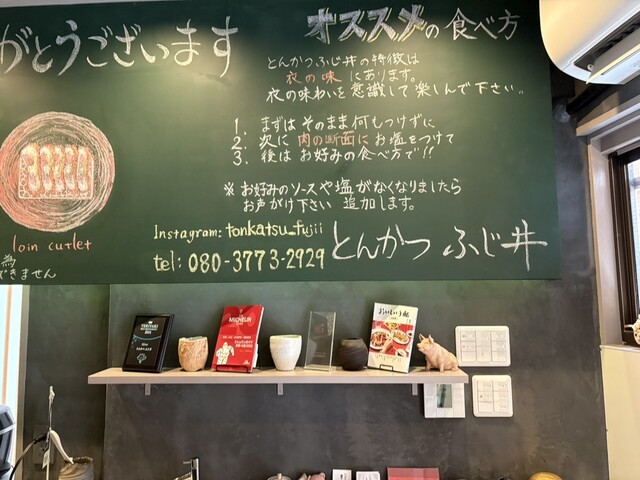 がとうございます
オススメの食べ方
とんかつふじ井の特徴は
衣の味にあります。
衣の味わいを意識して楽しんで下さい。
1. まずはそのまま何もつけずに
2. 次に肉の断面にお塩をつけて
3. 後はお好みの食べ方で!!
※お好みのソースや塩がなくなりましたら
お声がけ下さい 追加します。
loin cutlet
為
できません
Instagram: tonkatsu_fujii
tel: 080-3773-2929
とんかつ ふじ井
MICHELIN